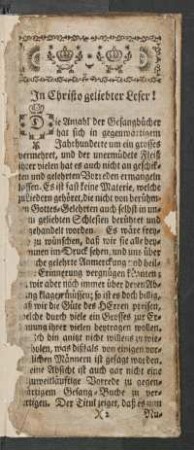 In Christo geliebter Leser!
Die Anzahl der Gesangbücher
hat sich in gegenwärtigem
Jahrhunderte um ein grosses
vermehret, und der unermüdete Fleiß
vielen hat es auch nicht an geschick-
ten und gelehrten Vorreden ermangeln
lassen. Es ist fast keine Materie, welche
Liedern gehöret, die nicht von berühm-
ten Gottes-Gelehrten auch selbst in un-
geliebten Schlesien berühret und
gehandelt worden. Es wäre frey-
zu wünschen, daß wir sie alle bey-
sammen im Druck sehen, und uns über
gelehrte Anmerckung und heil-
Erinnerung vergnügen könten;
wir aber noch immer über deren
so ist es doch billig,
wir die Güte des HErren preisen,
welche durch viele ein Grosses zur Er-
ihrer vielen beytragen wollen.
Ich bin anitzt nicht willens zu wie-
was dißfals von einigen vor-
Männern ist gesagt worden,
eine Absicht ist auch gar nicht eine
weitläuftige Vorrede zu gegen-
wärtigem Gesang-Buche in ver-
tigen. Der Titul zeiget, daß es zum
X 2 Nu-